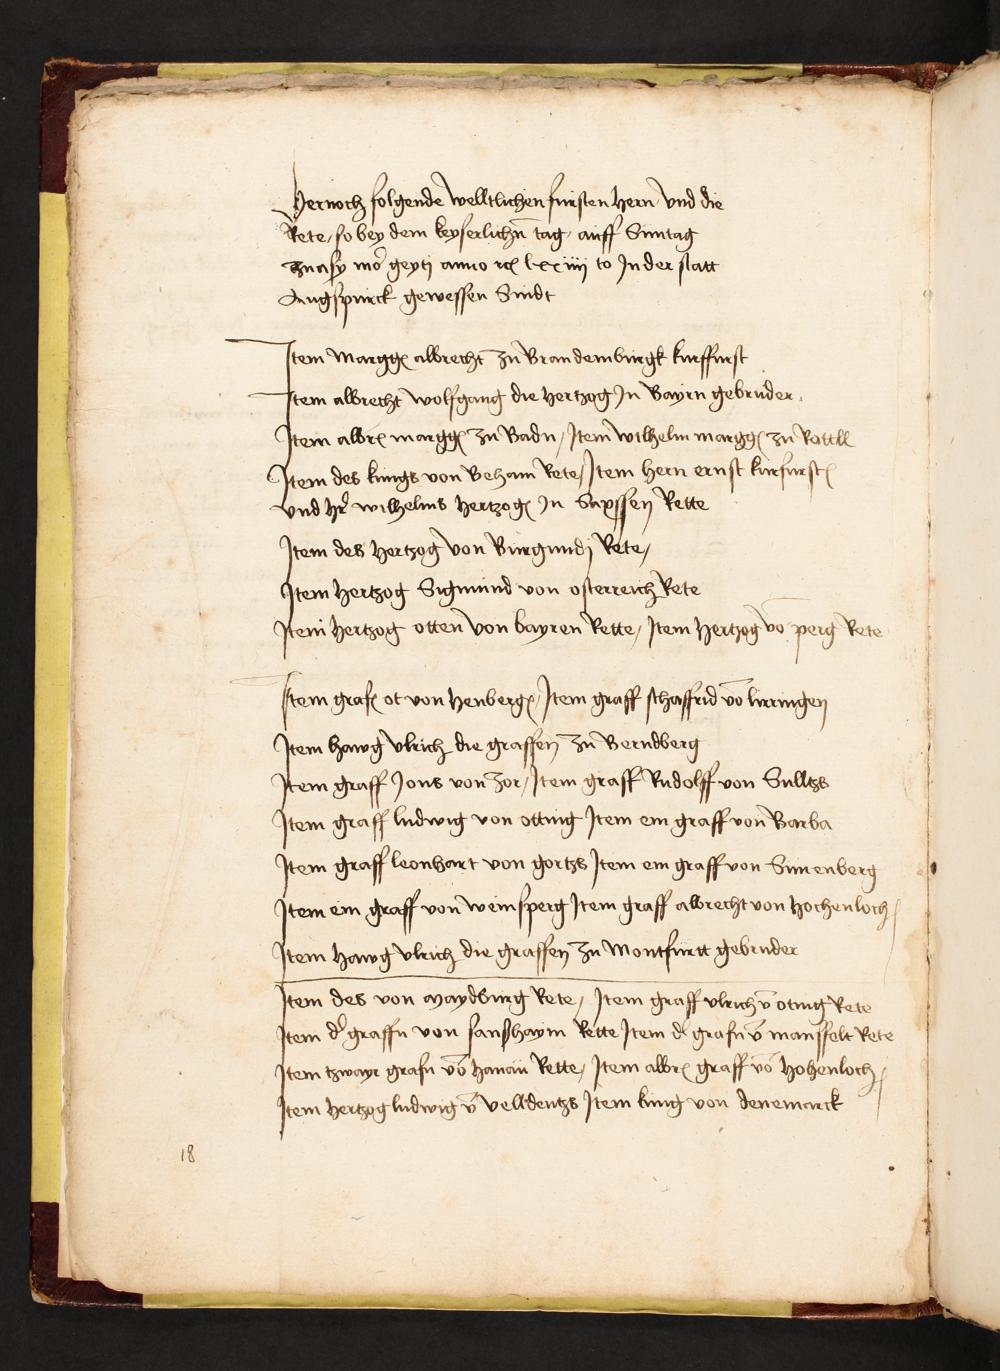 Hernoch folgende welltlichen fursten hern und die
Rete, so bey dem keyserlichn tag auff Suntag
anno lxxiiii to In der statt
Augspurck gewessen Sindt
Item Margg albrecht zu Brandemburgk kurffurst
Item albrecht wolfgang die hertzog In Bayrn gebruder.
Item albr margg zu Badn, Item wilhelm margg zu Rottll
Item des kungs von Beham Rete, Item hern ernst kurfurst
und hr wilhelms hertzog In Saxssen Rette
Item des hertzog von Burgundj Rete,
Item hertzog Sigmund von osterreich Rete
Item hertzog otten von bayren Rette, Item hertzog vo perg Rete
Item graf ot von henberg, Item graff schaffrid vo
Item hawg vlrich die graffen zu Berndberg
Item graff Jons von zor, Item graff Rudolff von Sulltzs
Item graff ludwig von otting Item ein graff von Barba
Item graff leonhart von gortzs Item ein graff von Sunenberg
Item ein graff von weinsperg Item graff albrecht von hochenloch
Item hawg vlrich die graffen zu Montfurtt gebruder
Item des von maydburg Rete, Item graff vlrich v oting Rete
Item dr graffn von Rette Item dr grafn v mansfelt Rete
Item tzwayr grafn vo hanau Rette, Item albr graff vo hohenloch
Item hertzog ludwig v velldentzs Item kung von denemarck
18